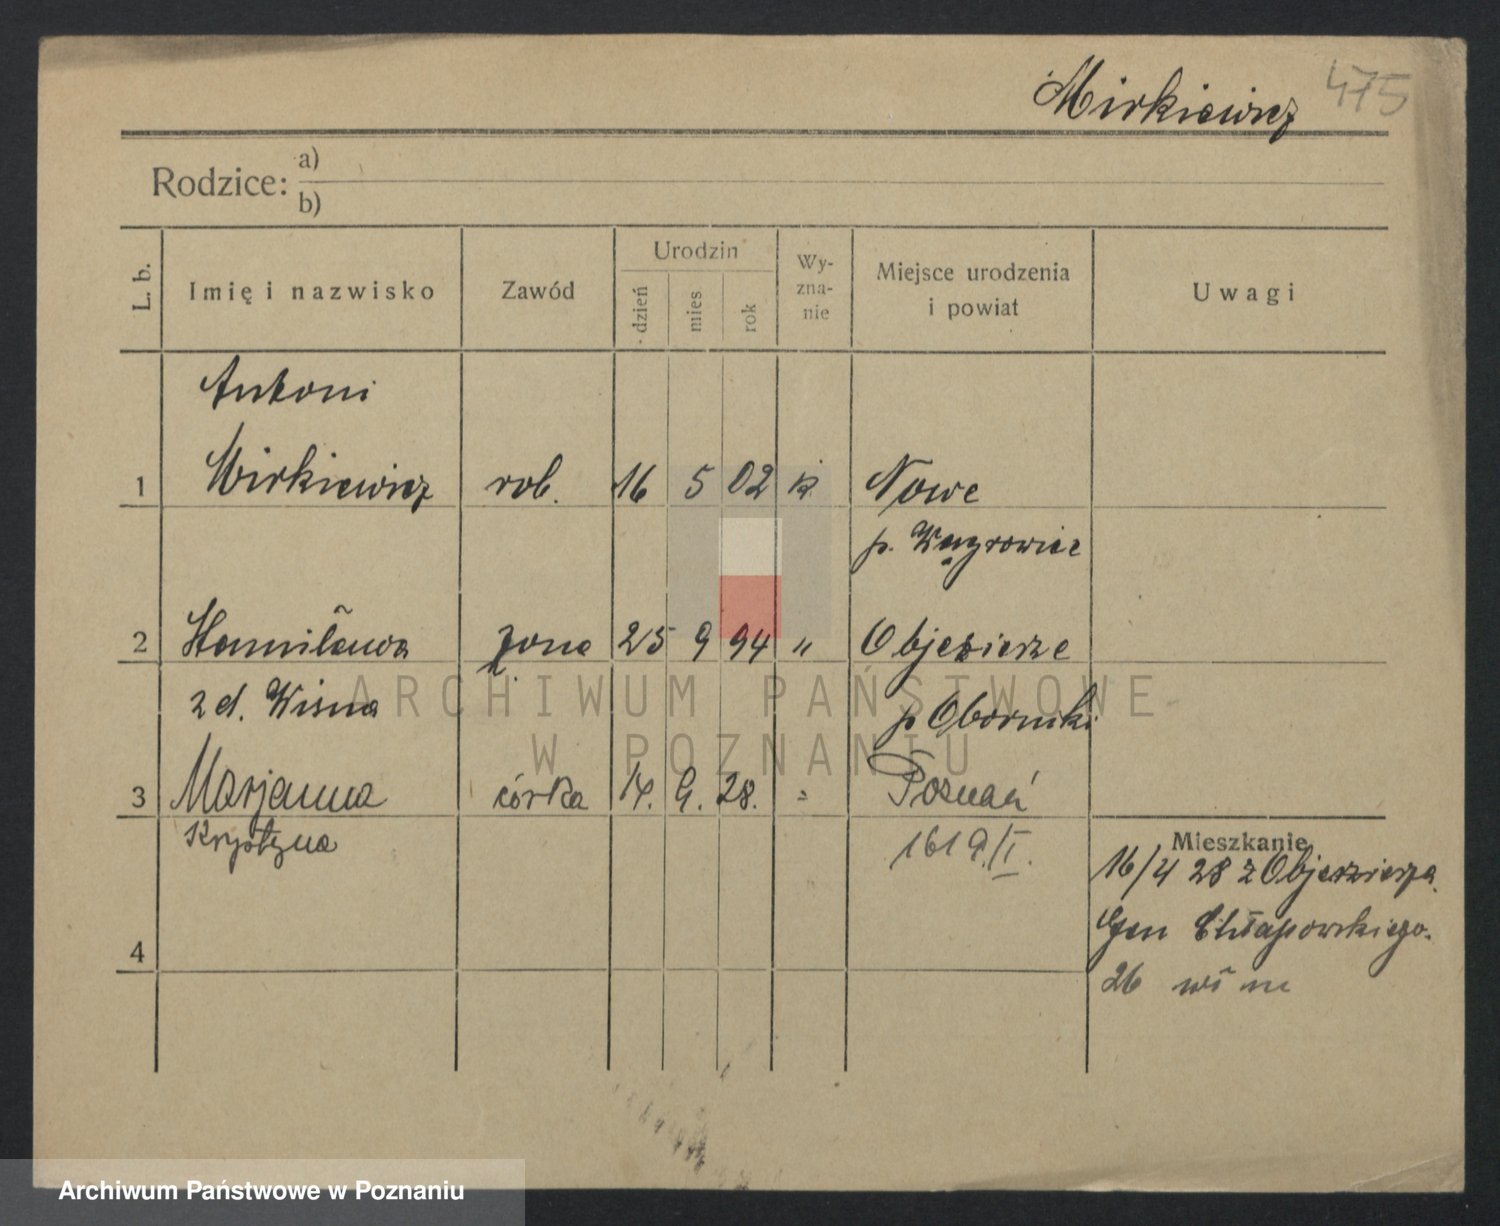 Mirkiewicz 475
Rodzice: a)
b)
L. b. Imię i nazwisko Zawód Urodzin dzień mies. rok Wy-zna-nie Miejsce urodzenia i powiat Uwagi
Antoni
1 Mirkiewicz rob. 16 5 02 k. Nowe
p. Wągrowiec
2 Stanisława żona 25 9 94 " Objezierze
z d. Wisna p Oborniki
3 Marjanna córka 14. 9. 28. " Poznań
Krystyna 1619./I.
Mieszkanie
16/4 28 z Objezierza
4 Gen Chłapowskiego.
26
ARCHIWUM PAŃSTWOWE
W POZNANIU
Archiwum Państwowe w Poznaniu